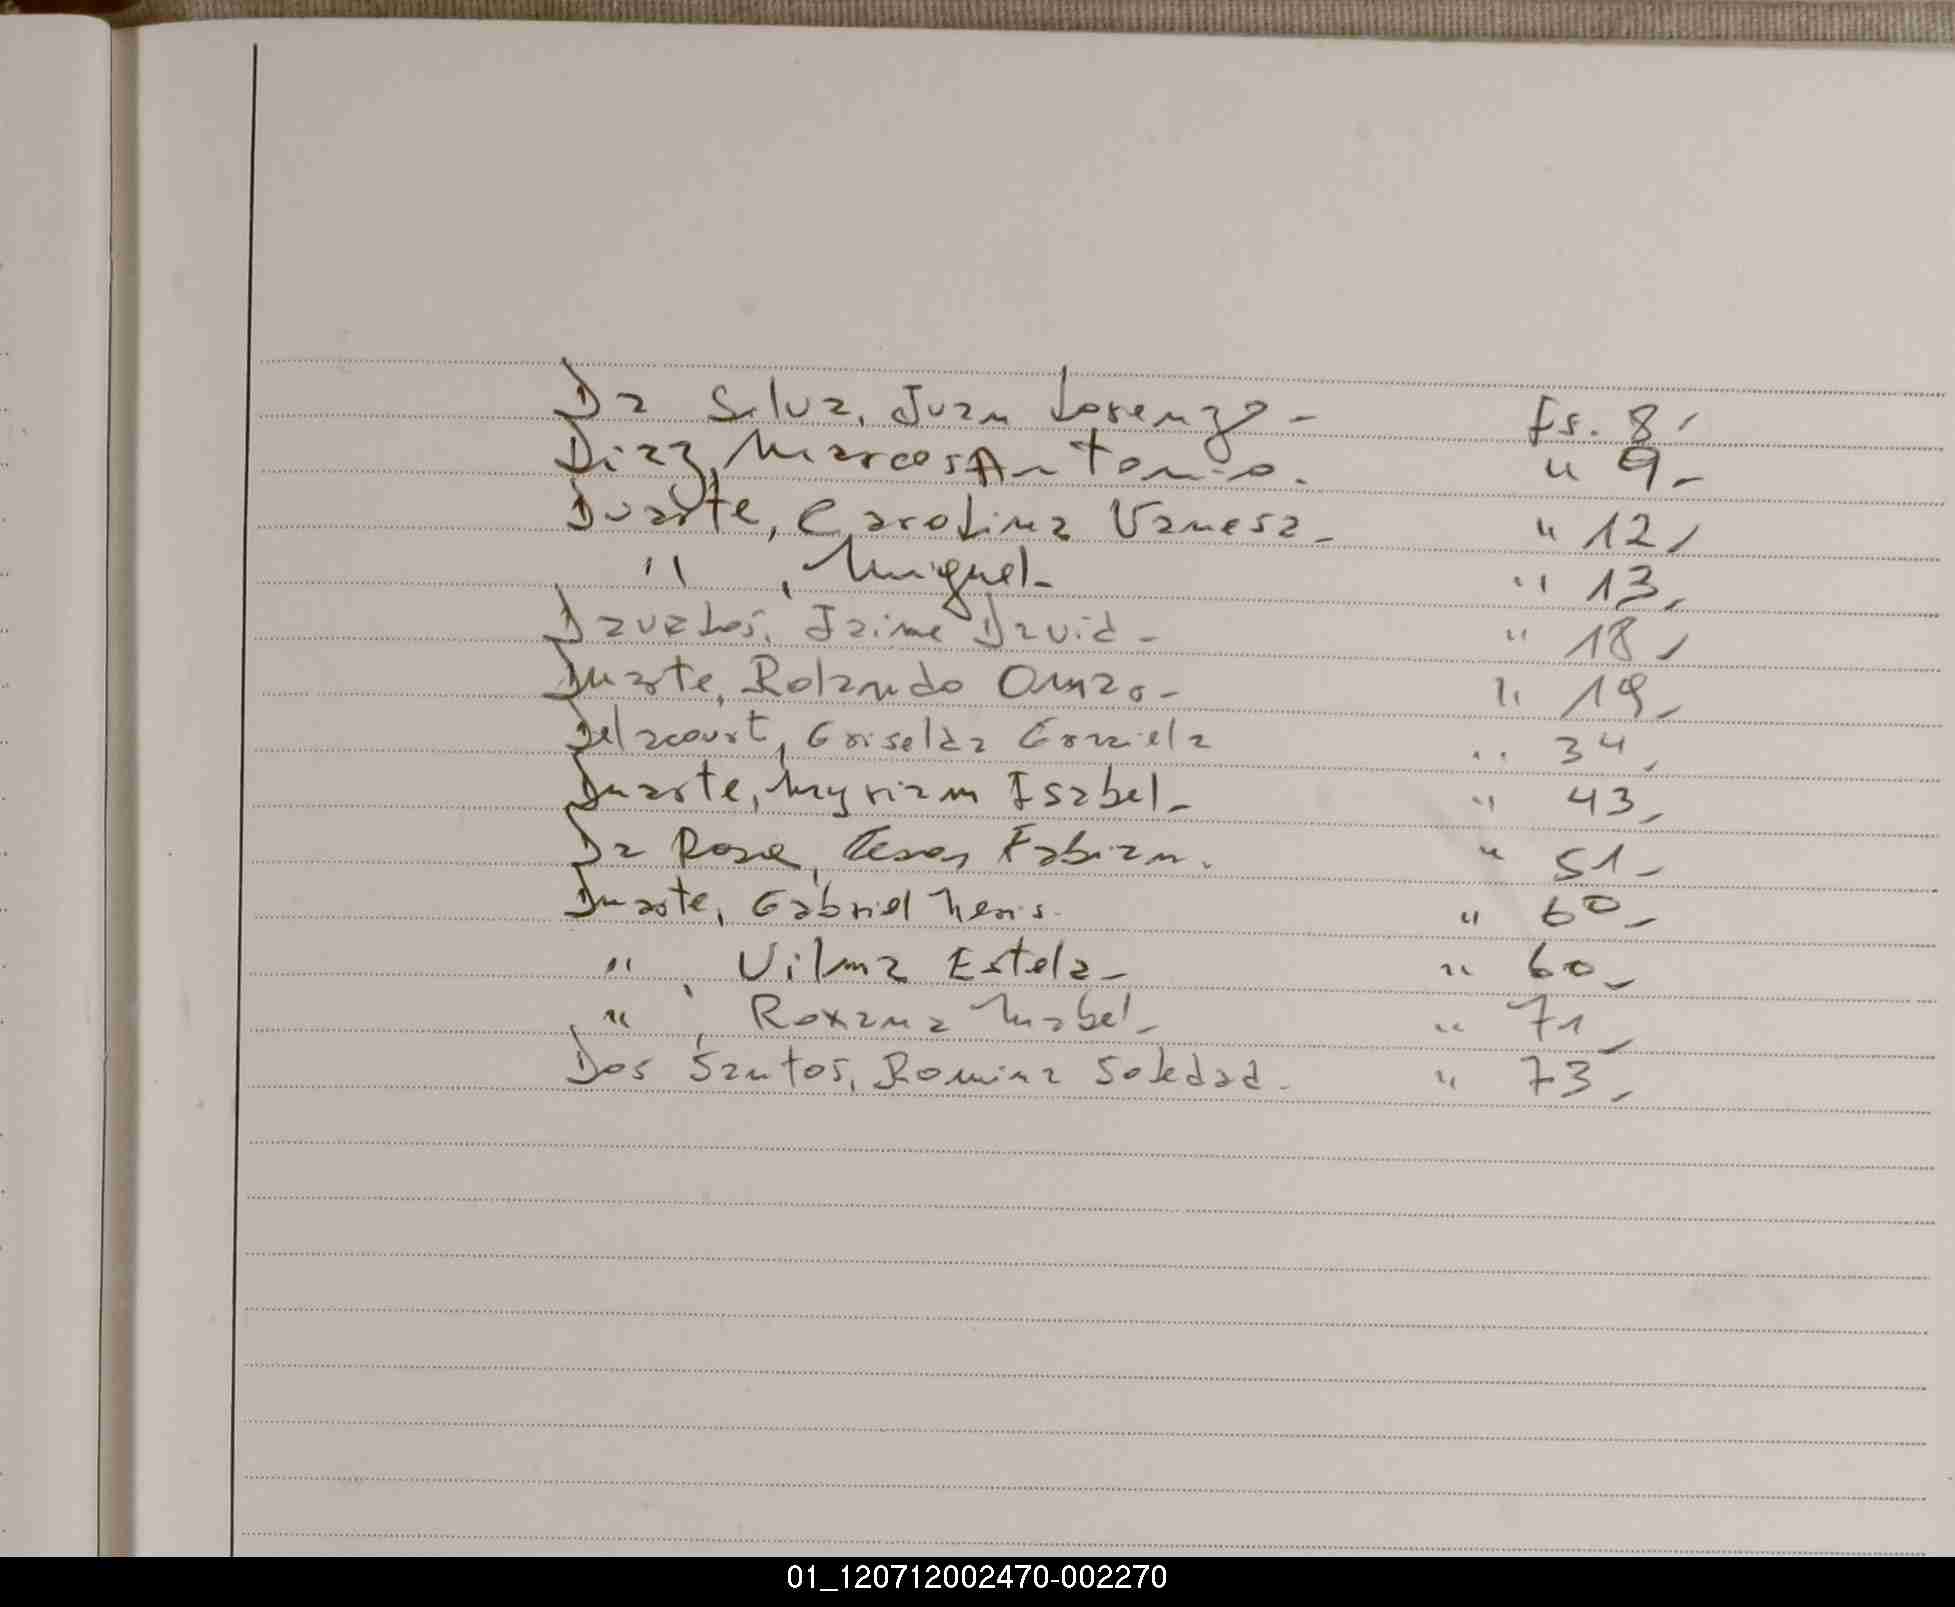 Da Silva, Juan Lorenzo - Fs. 8,
Diaz, Marcos Antonio. " 9,-
Duarte, Carolina Vanesa - " 12,
" , Miguel - " 13,
Davalos, Jaime David - " 18,
Duarte, Rolando Omar - " 19,
Delacourt, Griselda Graciela " 34,
Duarte, Myriam Isabel - " 43,
Da Rosa, Cesar Fabian. " 51 -
Duarte, Gabriel " 60 -
" , Vilma Estela - " 60 -
" , Roxana Mabel - " 71 -
Dos Santos, Romina Soledad. " 73,
01_120712002470-002270